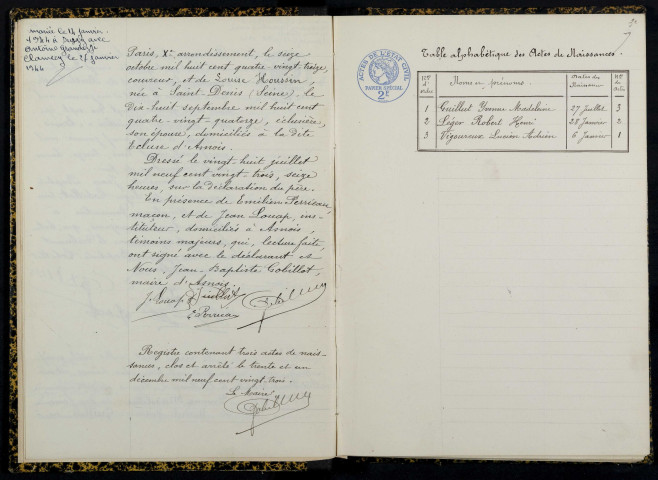 mariée le 24 janvier
1944 à
Antoine
Clamecy le 25 janvier
1944
Paris, X.e arrondissement, le seize
octobre mil huit cent quatre-vingt-treize,
couvreur, et de Louise Houssin
née à Saint-Denis (Seine), le
dix-huit septembre mil huit cent
quatre-vingt-quatorze, éclusière,
son épouse, domiciliés à la dite
Ecluse d'Asnois.
Dressé le vingt huit juillet
mil neuf cent vingt-trois, seize
heures, sur la déclaration du père.
En présence de Emilien Perreau,
maçon, et de Jean Loucap, ins-
tituteur, domiciliés à Asnois,
témoins majeurs, qui, lecture faite,
ont signé avec le déclarant et
Nous, Jean-Baptiste Gobillot,
maire d'Asnois.
J. Loucap Guillut
E Perreau
Registre contenant trois actes de nais-
sances, clos et arrêté le trente et un
décembre mil neuf cent vingt-trois.
Le Maire
ACTES DE L'ETAT CIVIL
PAPIER SPÉCIAL
2F
Table alphabétique des Actes de Naissances.
Nos d'ordre Noms et prénoms Dates de Naissance Nos des Actes
1 Guillut Yvonne Madeleine 27 Juillet 3
2 Léger Robert Henri 28 Janvier 2
3 Vigoureux Lucien Adrien 6 Janvier 1